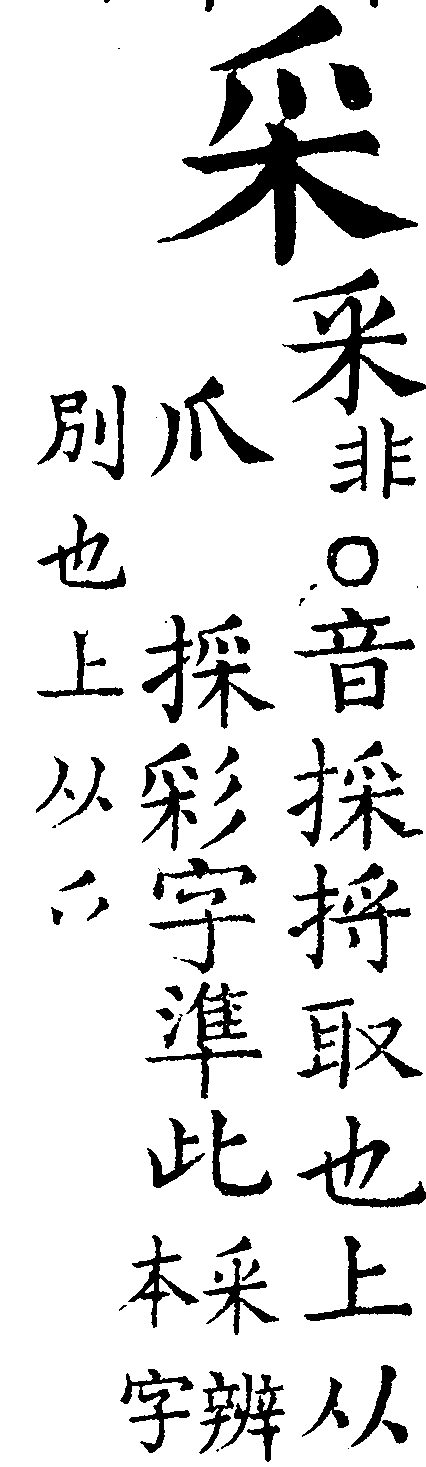 采
釆非○音採捋取也上从
爪 採彩字準此
釆辨
本字
別也上从